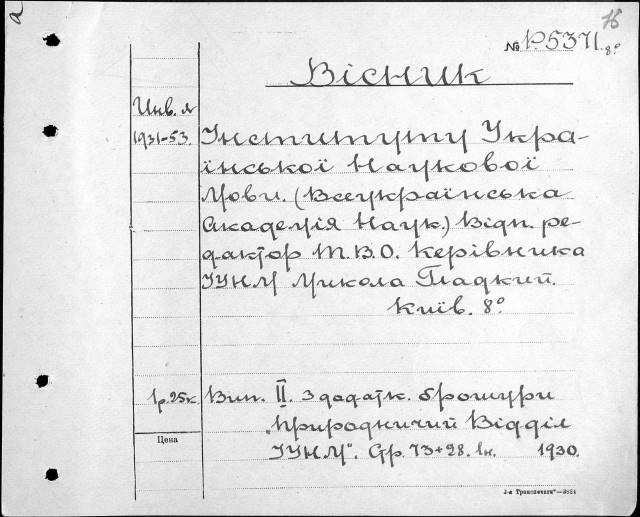 а
75
№ Р5371.8º
Вісник
Инв. №
1931-53.
Інституту Укра-
їнської Наукової
Мови. (Всеукраїнська
Академія Наук.) Відп. ре-
дактор Т.В.О. Керівника
ІУНМ Микола Гладкий.
Київ. 8º
1р.25к.
Вип. II. З додатк. брошури
„Природничий Відділ
ІУНМ“. Ст. 73+28. 1к. 1930.
Цена